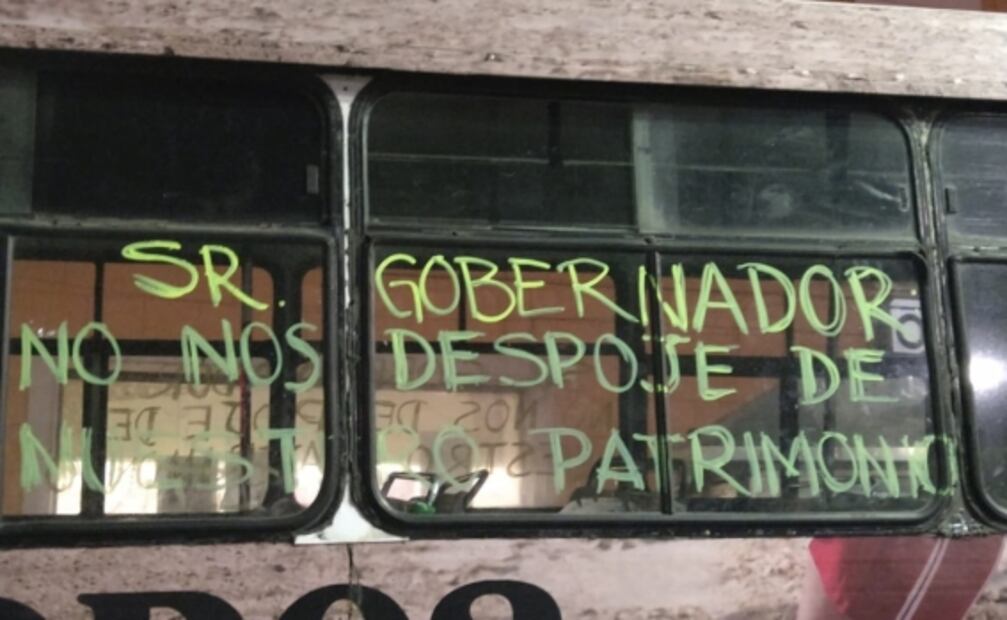 SR. GOBERNADOR
NO NOS DESPOJE DE
NUESTRO PATRIMONIO